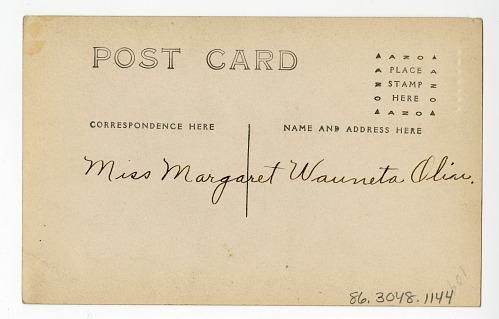 POST CARD
▲ AZO ▲
PLACE
STAMP
HERE
▲ AZO ▲
CORRESPONDENCE HERE
NAME AND ADDRESS HERE
Miss Margaret Wauneta Olin.
86.3048.1144